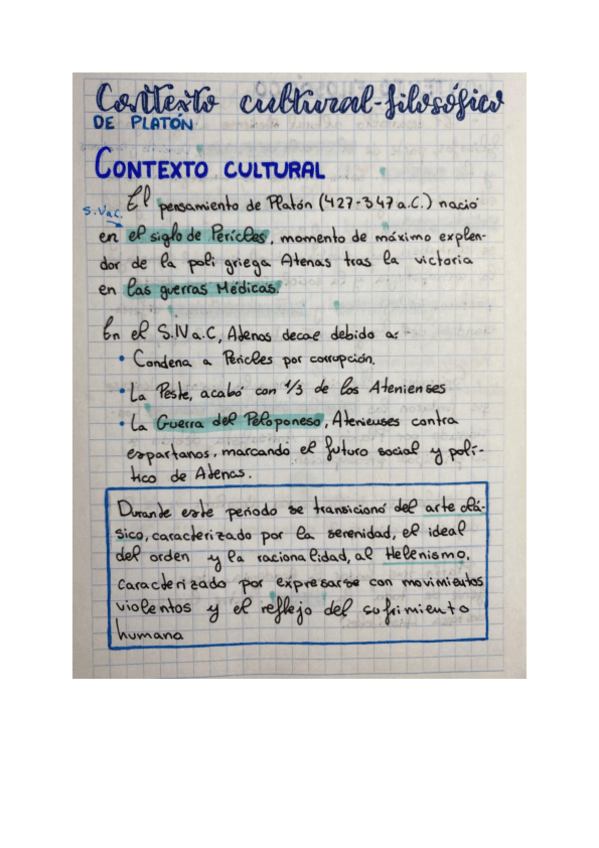 Contexto cultural-filosófico
DE PLATÓN
CONTEXTO CULTURAL
El pensamiento de Platón (427-347 a.C.) nació
S.V a.C.
en el siglo de Pericles, momento de máximo explen-
dor de la poli griega Atenas tras la victoria
en las guerras Médicas.
En el S.IV a.C, Atenas decae debido a:
• Condena a Pericles por corrupción.
• La Peste, acabó con 1/3 de los Atenienses
• La Guerra del Peloponeso, Atenienses contra
espartanos, marcando el futuro social y polí-
tico de Atenas.
Durante este periodo se transicionó del arte clá-
sico, caracterizado por la serenidad, el ideal
del orden y la racionalidad, al Helenismo,
caracterizado por expresarse con movimientos
violentos y el reflejo del sufrimiento
humana